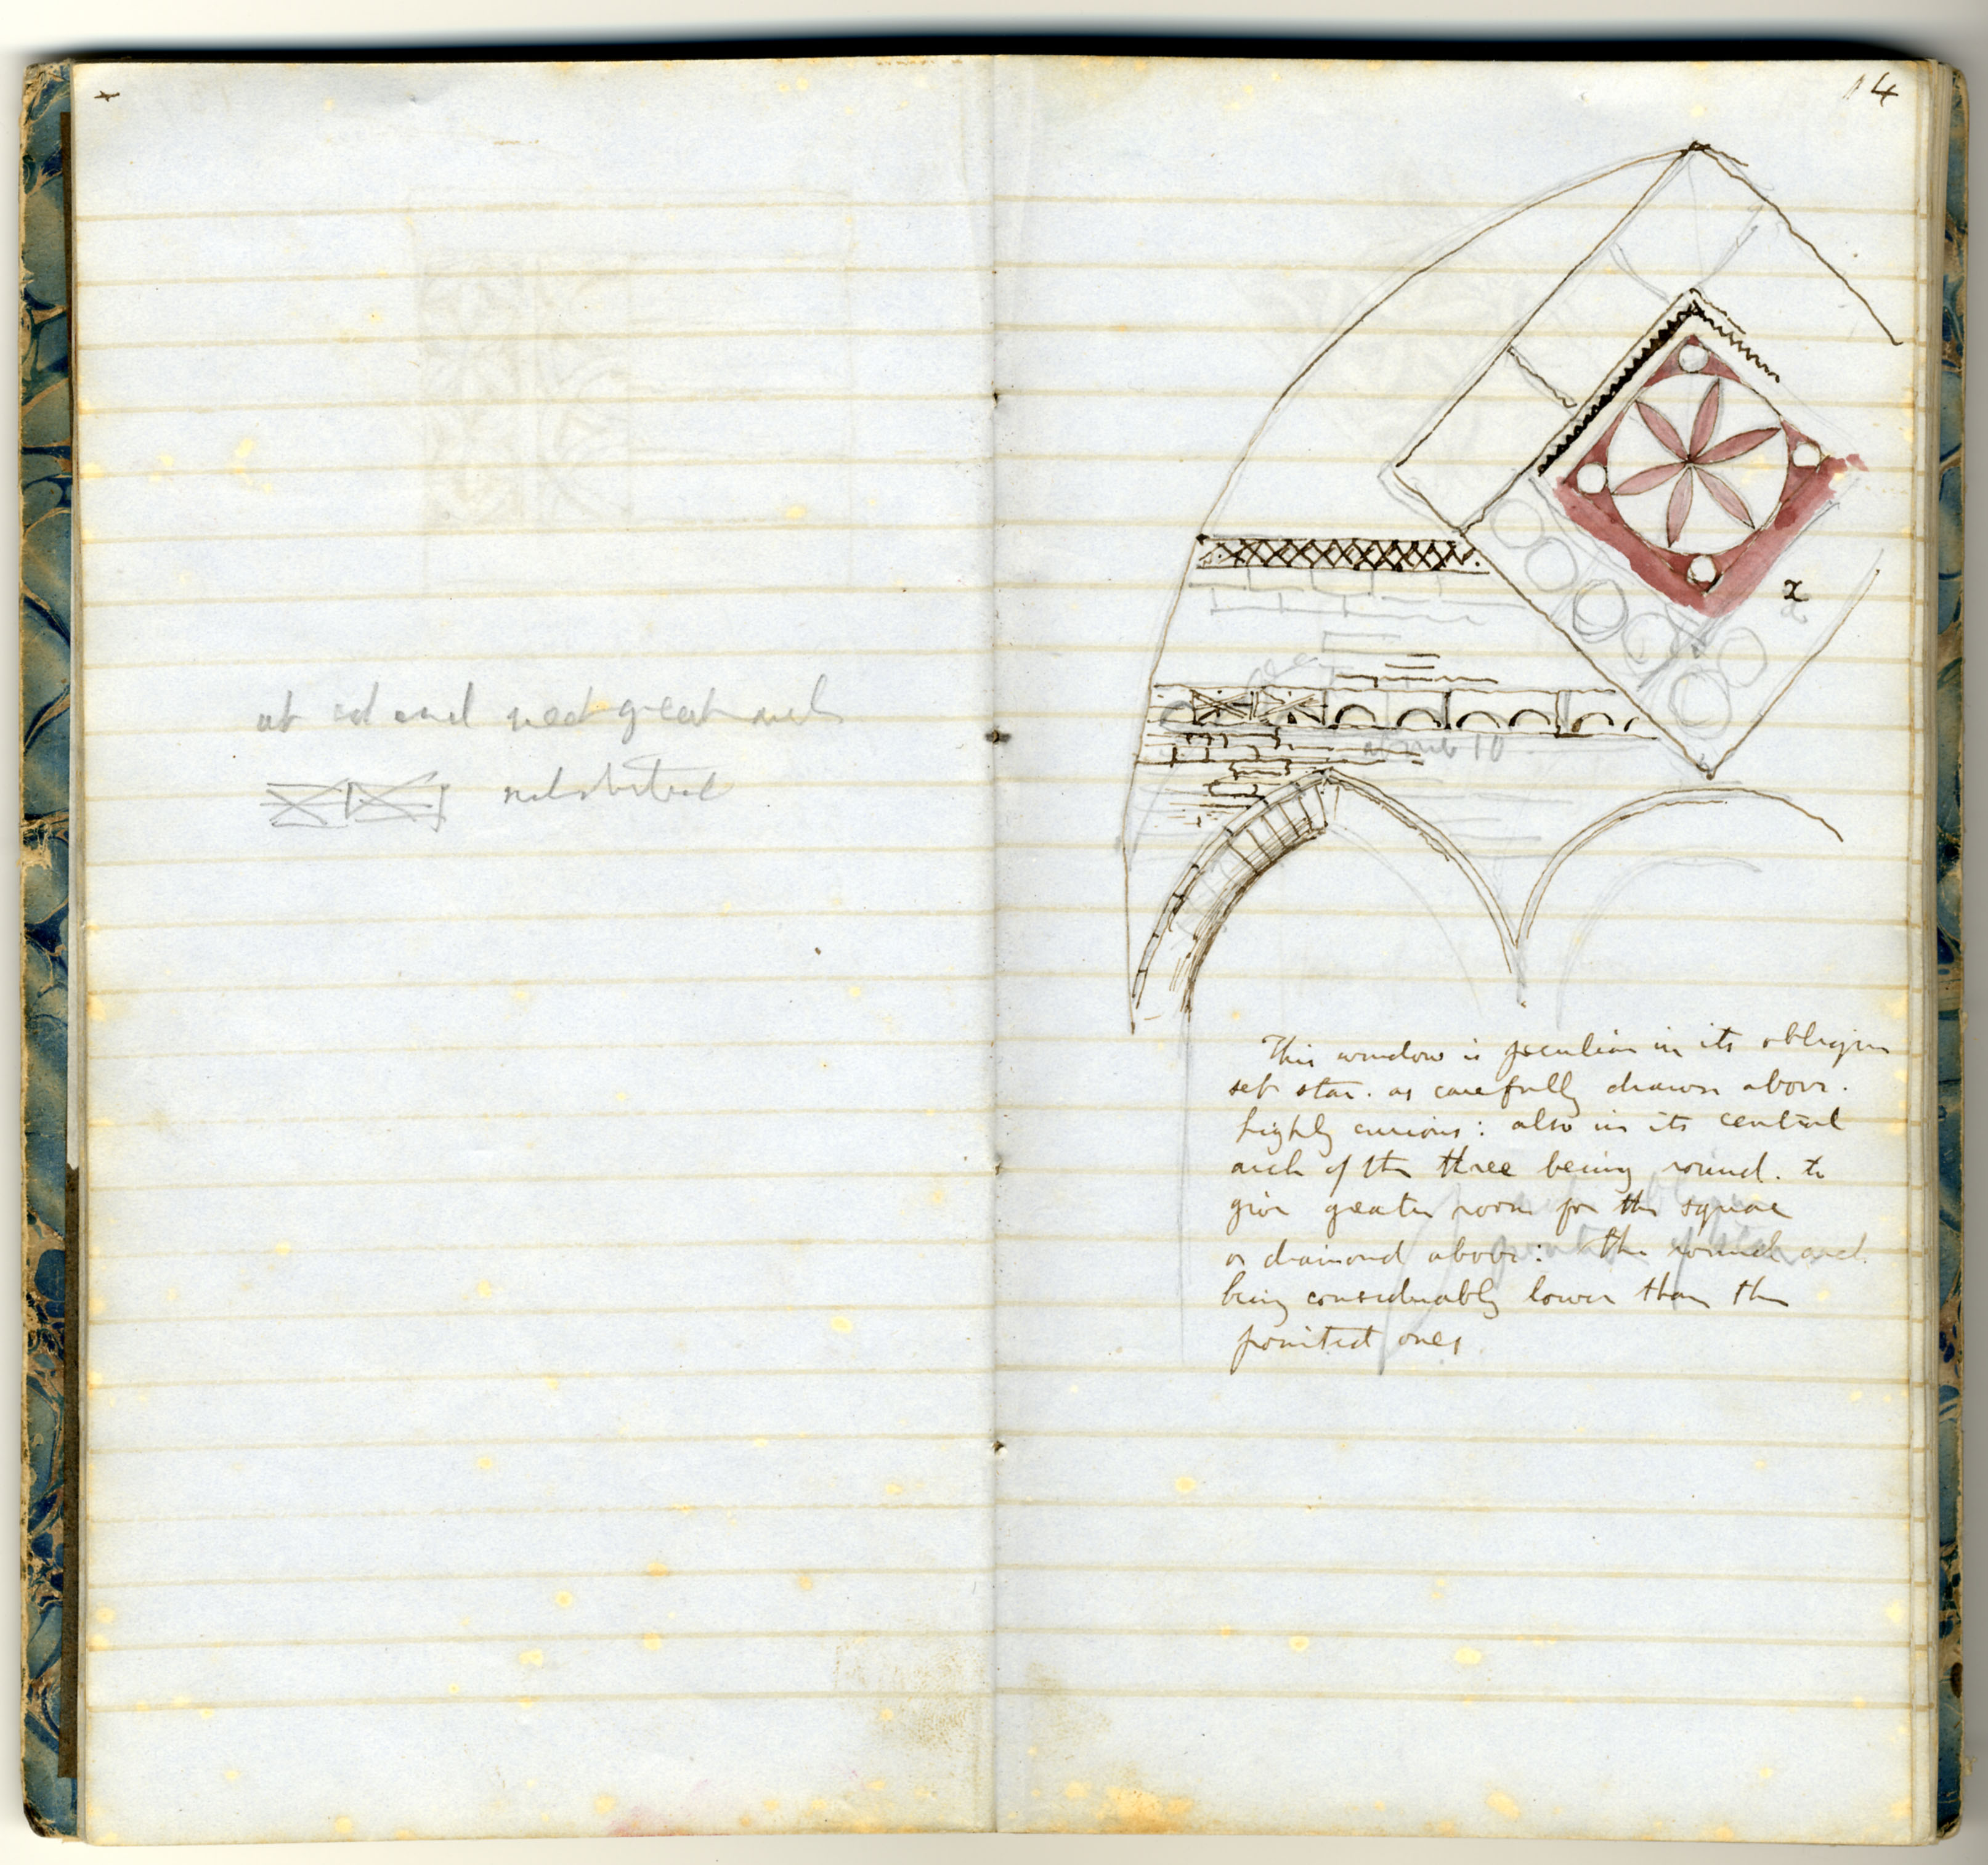 at end and next great arch
14
x
above 10
This window is peculiar in its oblique
set star. as carefully drawn above.
highly curious: also in its central
arch of the three being round. to
give greater room for the square
or diamond above: the round arch
being considerably lower than the
pointed ones